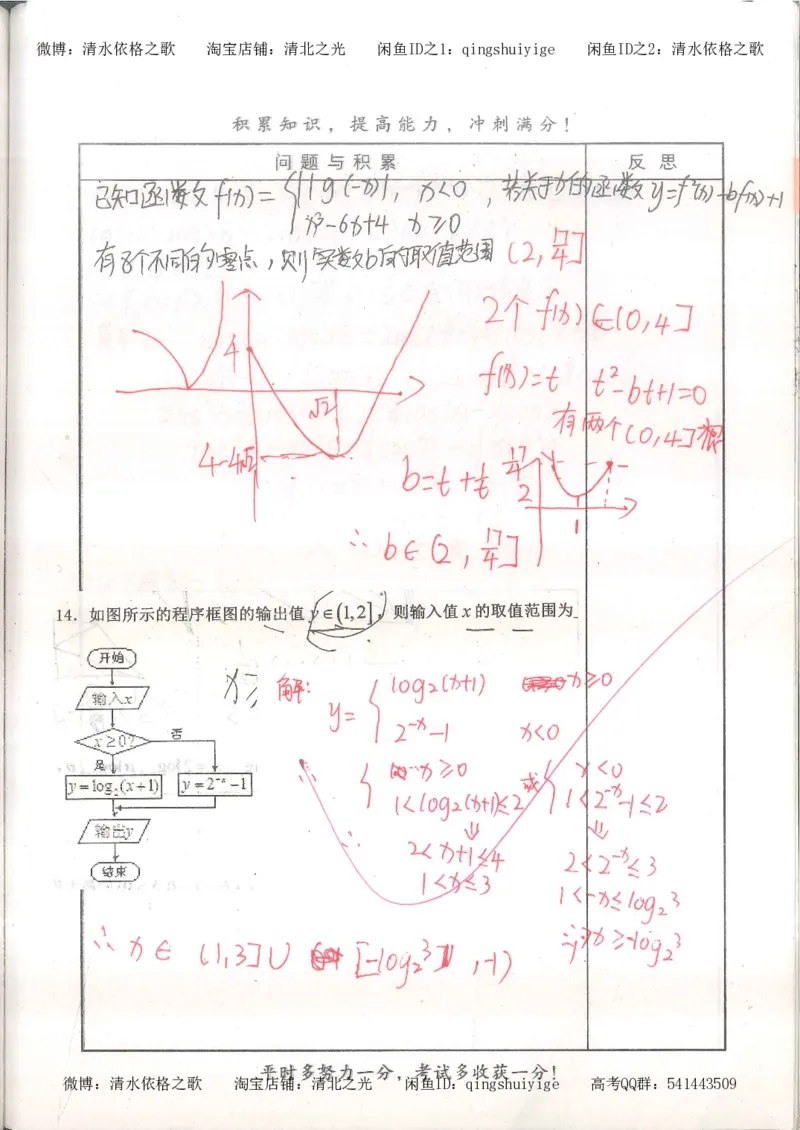 微博：清水依格之歌 淘宝店铺：清北之光 闲鱼ID之1：qingshuiyige 闲鱼ID之2：清水依格之歌
积累知识，提高能力，冲刺满分！
问题与积累 反思
已知函数f(x)={|lg(-x)|, x<0 ，若关于x的函数y=f²(x)-bf(x)+1
x³-6x+4 x≥0
有8个不同的零点，则实数b的取值范围 (2, 17/4]
2个f(x)∈(0,4]
4
f(x)=t t²-bt+1=0
√2
有两个(0,4]根
4-4√2
b=t+1/t 17/4
2
1
∴b∈(2, 17/4]
14. 如图所示的程序框图的输出值y∈(1,2]，则输入值x的取值范围为
开始
输入x
x≥0?
否
是
y=log₂(x+1) y=2⁻ˣ-1
输出y
结束
解：
y={log₂(x+1) x≥0
2⁻ˣ-1 x<0
{x≥0 或{x<0
1<log₂(x+1)≤2 1<2⁻ˣ-1≤2
⇓ ⇓
∴ 2<x+1≤4 2<2⁻ˣ≤3
1<x≤3 1<-x≤log₂3
x≥-log₂3
∴x∈(1,3]∪[-log₂3,-1)
平时多努力一分，考试多收获一分！
微博：清水依格之歌 淘宝店铺：清北之光 闲鱼ID：qingshuiyige 高考QQ群：541443509